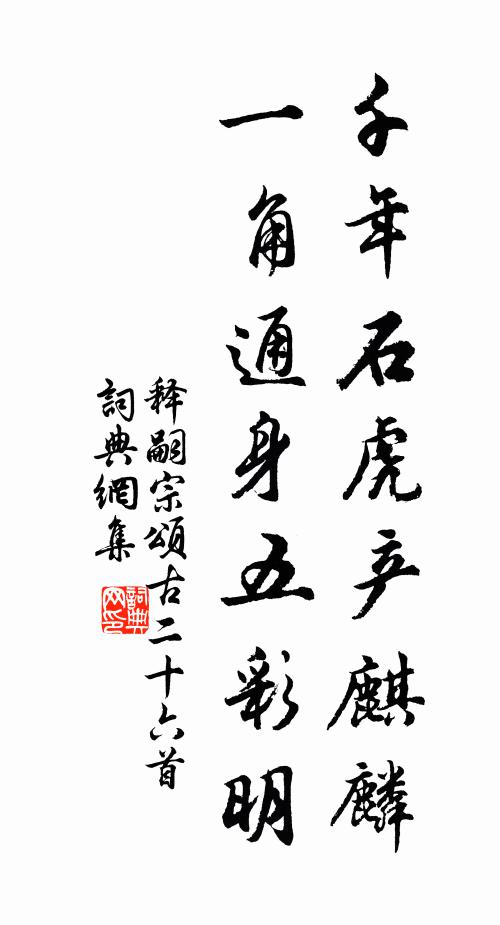 千年石虎产麒麟
一角通身五彩明
释嗣宗頌古二十六首
詞典網集
詞典网印